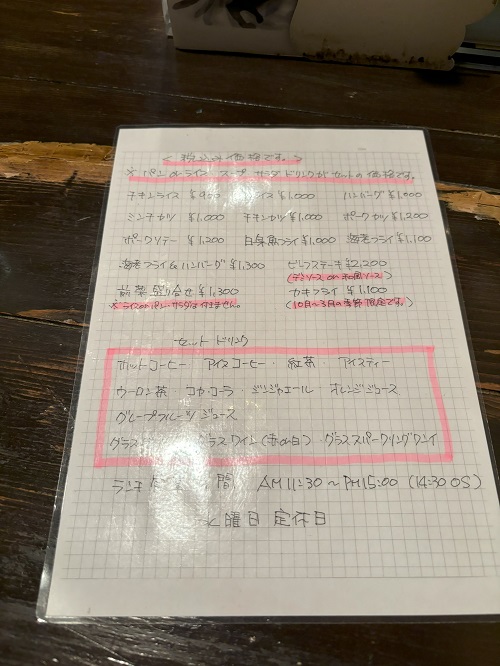 < 税込み価格です。>
※ パン or ライス スープ サラダ ドリンクがセットの価格です。
チキンライス ¥950 ライス ¥1,000 ハンバーグ ¥1,000
ミンチカツ ¥1,000 チキンカツ ¥1,000 ポークカツ ¥1,200
ポークソテー ¥1,200 白身魚フライ ¥1,000 海老フライ ¥1,100
海老フライ&ハンバーグ ¥1,300 ビーフステーキ ¥2,200
(デミソース or 和風ソース)
前菜盛り合せ ¥1,300 カキフライ ¥1,100
※ライスorパン・サラダは付きません。 (10月~3月の季節限定です。)
セットドリンク
ホットコーヒー ・ アイスコーヒー ・ 紅茶 ・ アイスティー
ウーロン茶 ・ コカ・コーラ ・ ジンジャエール ・ オレンジジュース
グレープフルーツジュース
グラス グラスワイン (赤or白) ・ グラススパークリングワイン
ランチ 間 AM 11:30 ~ PM 15:00 (14:30 OS)
曜日 定休日